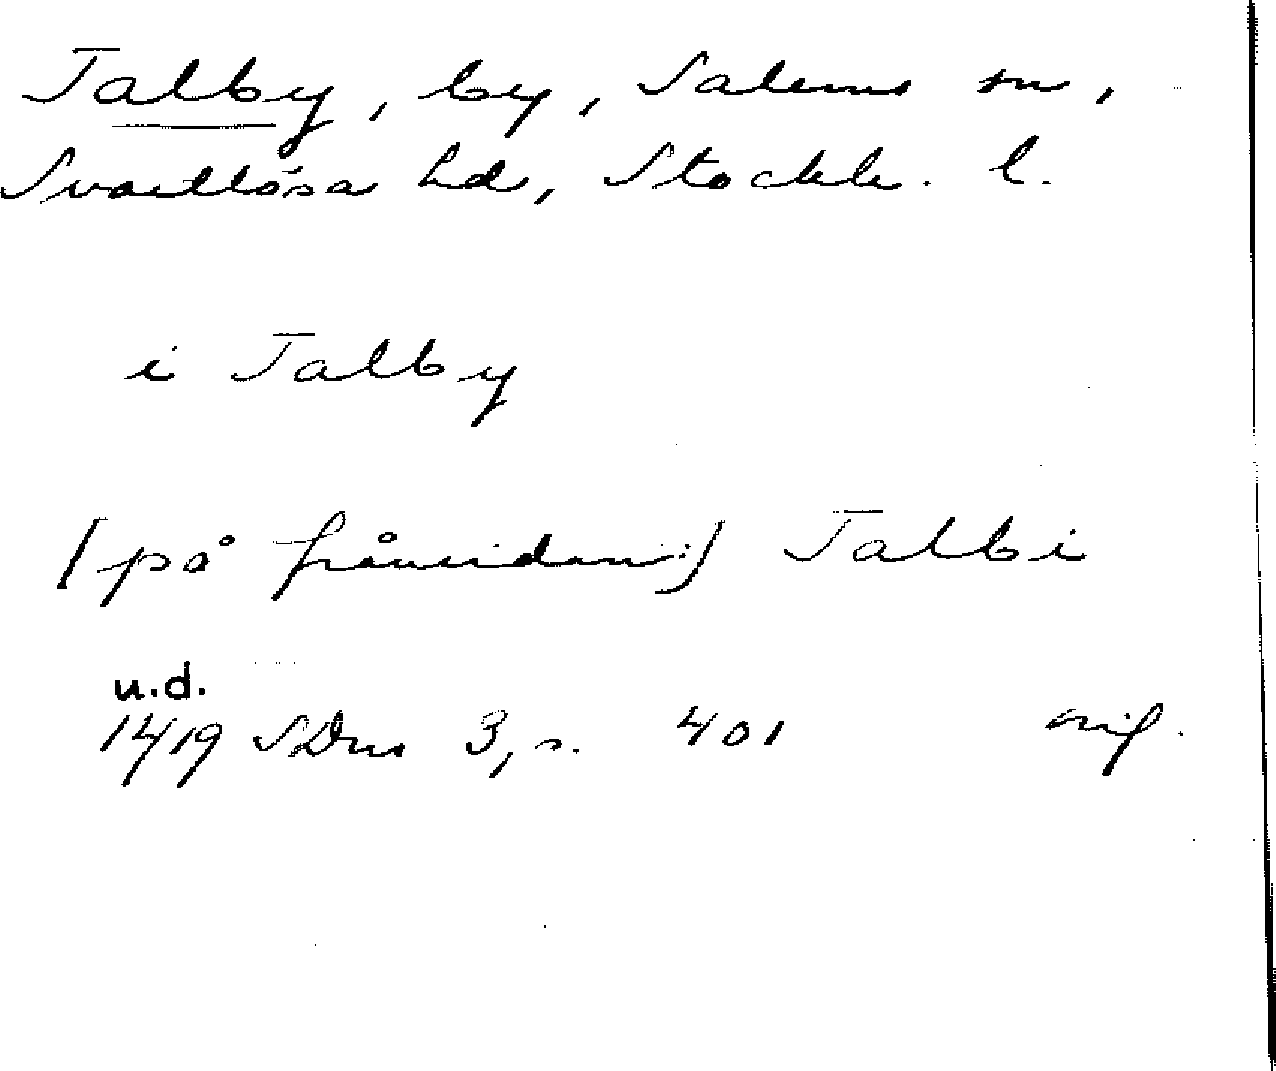 Talby, by, Salems sn,
Svartlösa hd, Stockh. l.
i Talby
(på frånsidan:) Talbi
u.d.
1419 SDns 3, s. 401